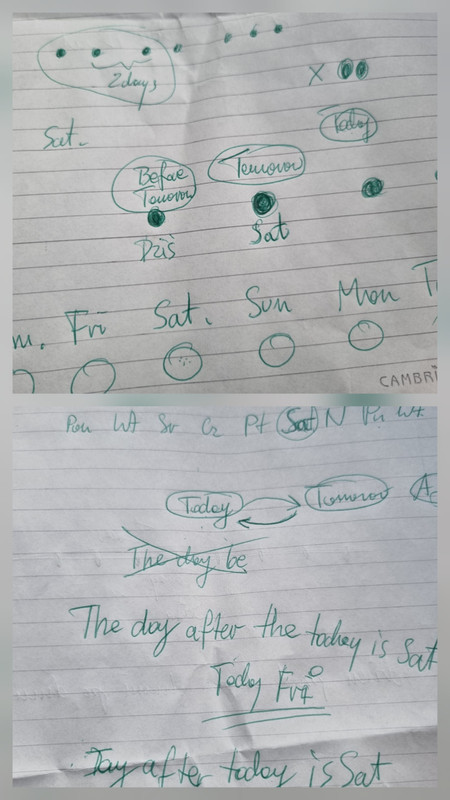 2days
X
Today
Sat.
Before
Tomorow
Tomorow
Dziś
Sat
m. Fri Sat. Sun Mon T
CAMBRI
Pon Wt Śr Cz Pt Sat N Pn Wt
Today Tomorow A
The day be
The day after the today is Sat
Today Fri
Day after today is Sat